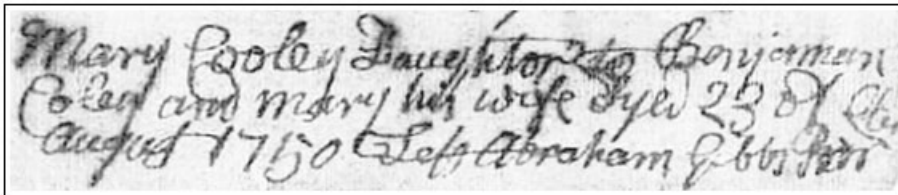 Mary Cooley Daughtor to Benjaman
Coley and Mary his wife Dyed 23 of
August 1750 Test Abraham Gibbs